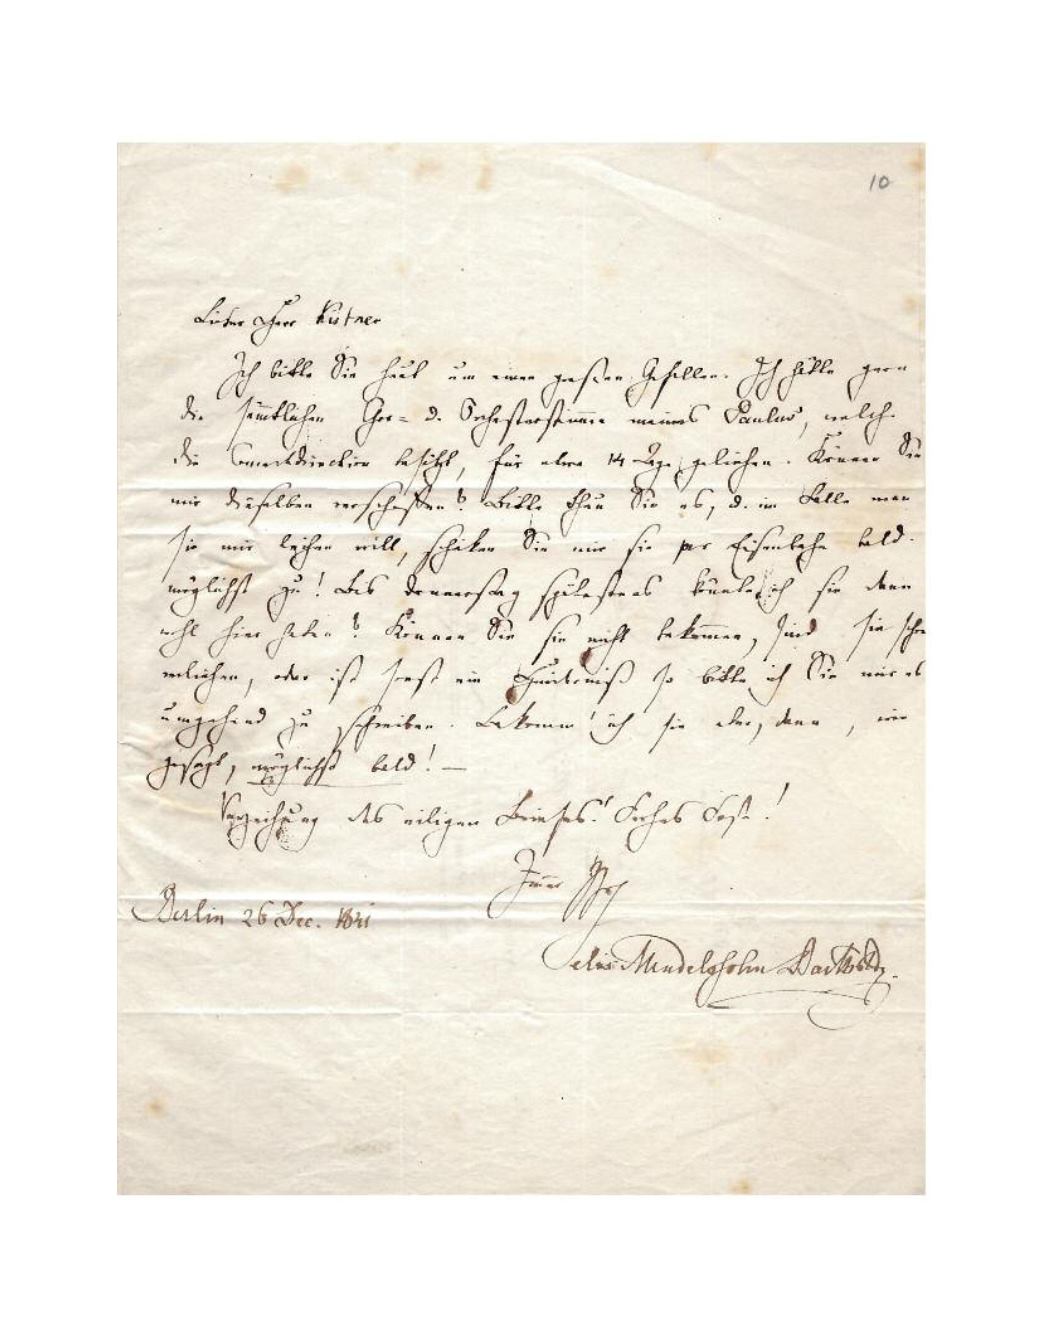 10
Lieber Herr Kistner
Ich bitte Sie heut um einen großen Gefallen. Ich hätte gern
die sämtlichen Chor= u. Orchesterstimmen meines Paulus, welche
die Concertdirection besitzt, für etwa 14 Tage geliehen. Können Sie
mir dieselben verschaffen? Bitte thun Sie es, u. im Falle man
sie mir leihen will, schicken Sie mir sie per Eisenbahn bald-
möglichst zu! Bis Donnerstag spätestens könnte ich sie dann
wohl hier haben? Können Sie sie nicht bekommen, sind sie schon
verliehen, oder ist sonst ein Hinderniß so bitte ich Sie mir es
umgehend zu schreiben. Bekomm' ich sie aber, dann, wie
gesagt, möglichst bald! —
Verzeihung des eiligen Briefes! Frohes Fest!
Immer Ihr
Berlin 26 Dec. 1841
Felix Mendelssohn Bartholdy.